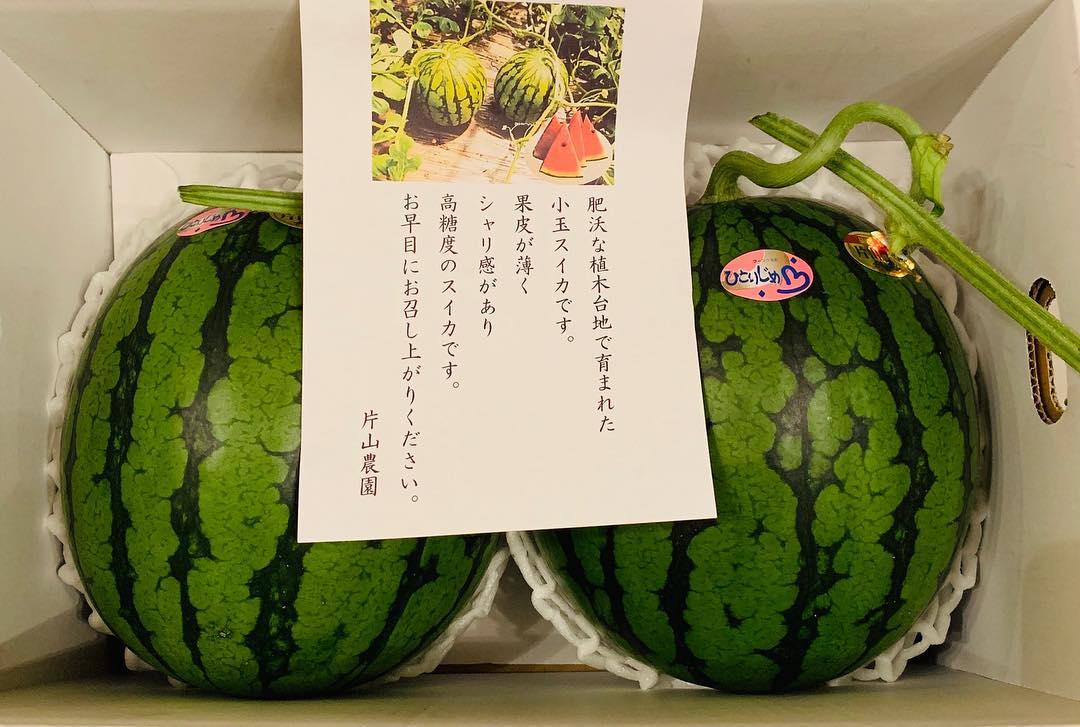 肥沃な植木台地で育まれた
小玉スイカです。
果皮が薄く
シャリ感があり
高糖度のスイカです。
お早目にお召し上がりください。
片山農園
ひとりじめ
ひとりじめ
片